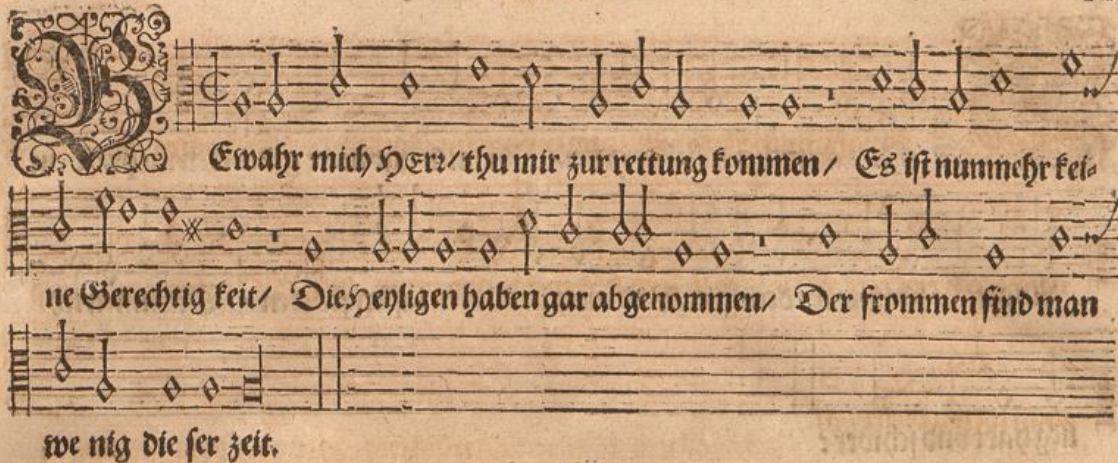 BEwahr mich HErr/ thu mir zur rettung kommen/ Es ist nunmehr kei-
ne Gerechtig keit/ Die Heyligen haben gar abgenommen/ Der frommen find man
we nig die ser zeit.